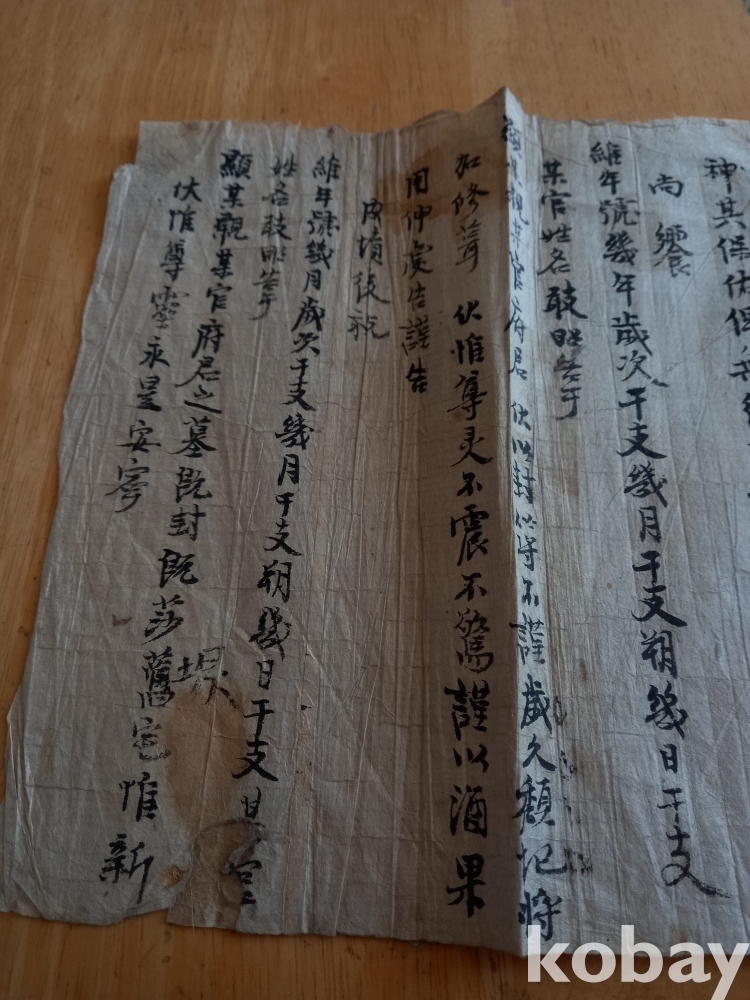 神其保佑俾無
尚饗
維年號幾年歲次干支幾月干支朔幾日干支
某官姓名敢昭告于
顯某親某官府君 伏以封 不謹歲久頹圮將
加修葺 伏惟尊灵不震不驚謹以酒果
用伸虔告謹告
成墳後祝
維年號幾月歲次干支幾月干支朔幾日干支某官
姓名敢昭告于
顯某親某官府君之墓既封既莎舊宅惟新
伏惟尊靈永是安寧
kobay